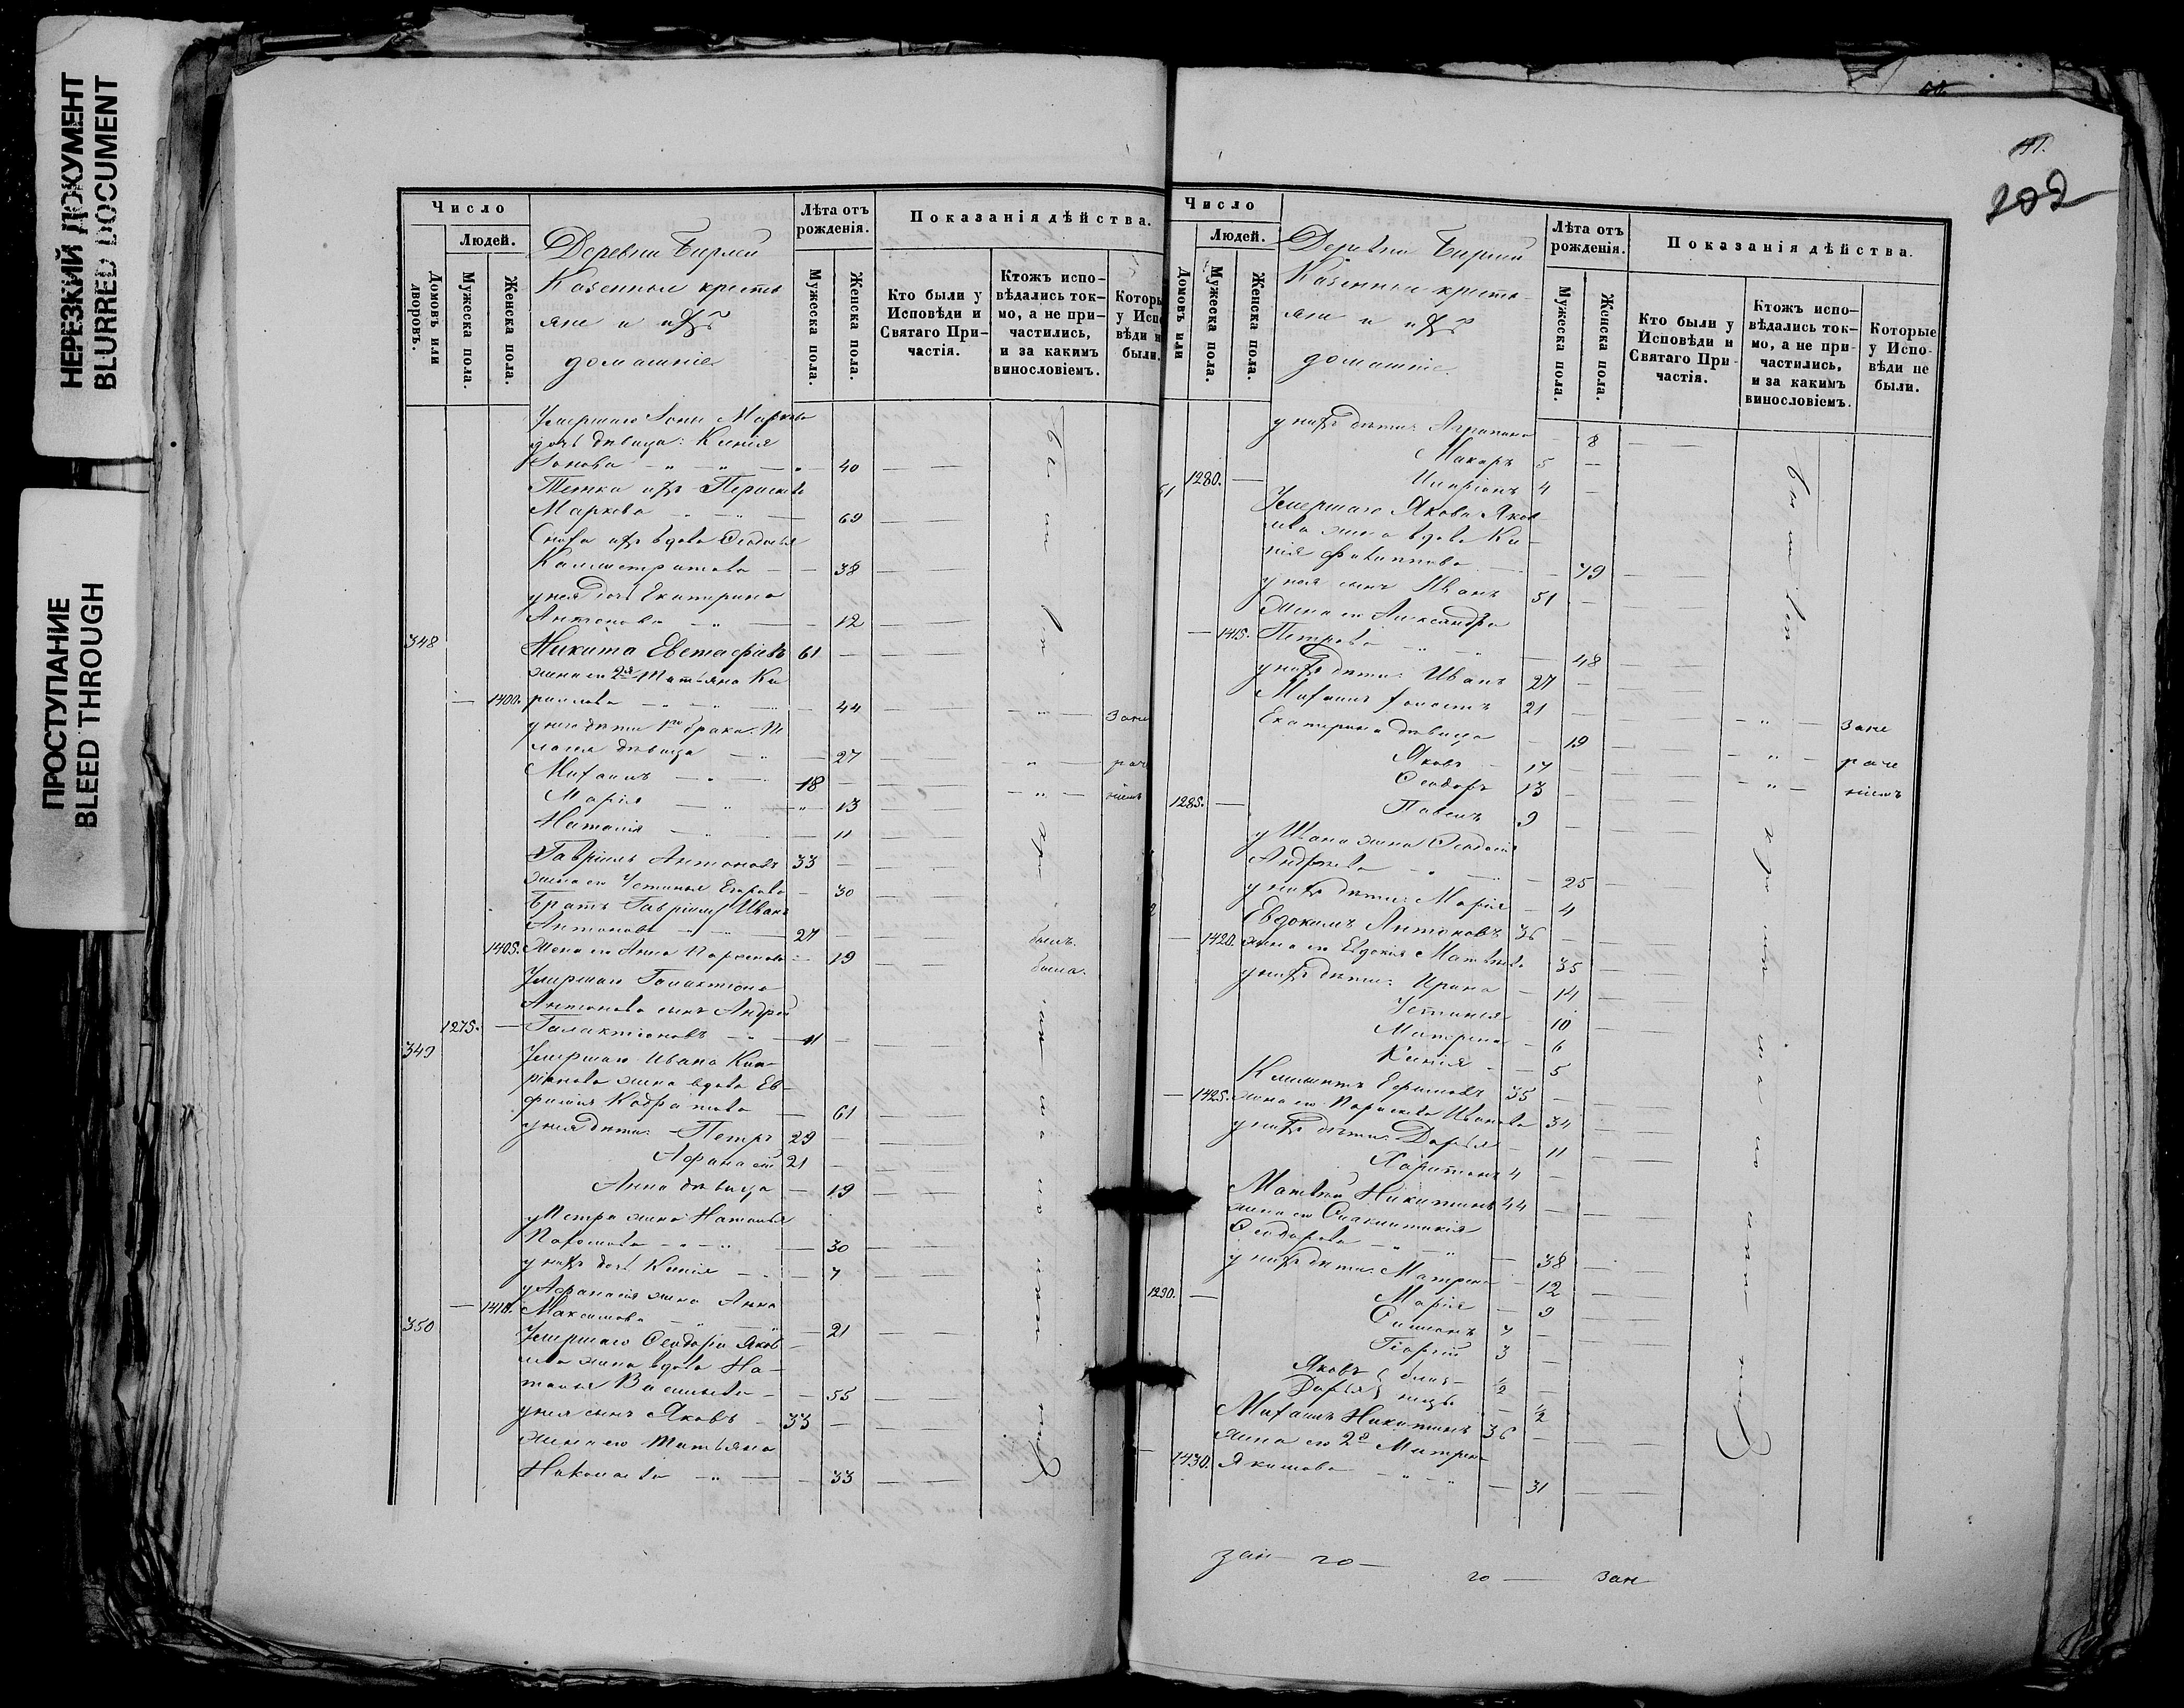 НЕРЕЗКИЙ ДОКУМЕНТ
BLURRED DOCUMENT
ПРОСТУПАНИЕ
BLEED THROUGH
Число
Людей.
Домовъ или дворовъ.
Мужеска пола.
Женска пола.
Деревни Бирлей
Казенные кресть
яне и ихъ
домашніе
Лѣта отъ рожденія.
Мужеска пола.
Женска пола.
Показанія дѣйства.
Кто были у Исповѣди и Святаго При-частія.
Ктожъ испо-вѣдались ток-мо, а не при-частились, и за какимъ винословіемъ.
Которы
у Испо
вѣди н
были.
Умершаго Іоны Маркова
дочь дѣвица: Ксенія
Іонова 40
Тетка ихъ Параскева
Маркова 69
Сноха ихъ вдова Ѳеодосья
Каллистратова 38
у нея дочь Екатерина
Антонова 12
348 Никита Евстафіевъ 61
жена его 2я Татьяна Ки
1400. рилова 44
у него дѣти 1го брака:
дѣвица 27
Михаилъ 18
Марія 13
Наталія 11
Гавріилъ Антоновъ 33
жена его Устинья Егорова 30
Братъ Гавріила Иванъ
Антоновъ 27 былъ.
1405. Жена его Анна 19 была.
Умершаго Галактіона
Антонова сынъ Андрей
1275. Галактіоновъ 11
349 Умершаго Ивана Кип
ріянова жена вдова Ев-
фимія Кодратова 61
у нея дѣти: Петръ 29
Афанасій 21
Анна дѣвица 19
у Петра жена Наталья
30
у нихъ дочь Ксенія 7
у Афанасія жена Анна
1410. Максимова 21
350 Умершаго Ѳеодора Яков
лева жена вдова На-
талья Васильева 55
у нея сынъ Яковъ 33
жена его Татьяна
Николаева 33
202
Число
Людей.
Домовъ или
Мужеска пола.
Женска пола.
Деревни Бирлей
Казенные кресть-
яне и ихъ
домашніе.
Лѣта отъ рожденія.
Мужеска пола.
Женска пола.
Показанія дѣйства.
Кто были у Исповѣди и Святаго При-частія.
Ктожъ испо-вѣдались ток-мо, а не при-частились, и за какимъ винословіемъ.
Которые у Испо-вѣди не были.
у нихъ дѣти: Агрипина 8
Макаръ 5
1280. Кипріянъ 4
Умершаго Якова Яков
лева жена вдова Ксе-
нія Филиппова 79
у нея сынъ Иванъ 51
Жена его Александра
1415. Петрова 48
у нихъ дѣти: Иванъ 27
Михаилъ холостъ 21
Екатерина дѣвица 19
Яковъ 17
Ѳеодоръ 13
1285. Павелъ 9
у Ивана жена Ѳеодосія
Андреева 25
у нихъ дѣти: Марія 4
Евдокимъ Антоновъ 36
1420. жена его Евдокія Матвѣева 35
у нихъ дѣти: Ирина 14
Устинья 10
Матрена 6
Ксенія 5
Климентъ Ефимовъ 35
1425. жена его Параскева Иванова 34
у нихъ дѣти: Дарья 11
Харитонъ 4
Матвѣй Никитинъ 44
жена его
Ѳеодорова 38
у нихъ дѣти: Матрена 12
1290. Марія 9
Симеонъ 7
Георгій 3
Яковъ близ- ½
Дарья нецы ½
Михаилъ Никитинъ 36
жена его 2я Матрена
1430. Якимова 31
зане
раче
ніемъ